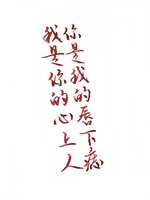 你是我的唇下痣
我是你的心上人